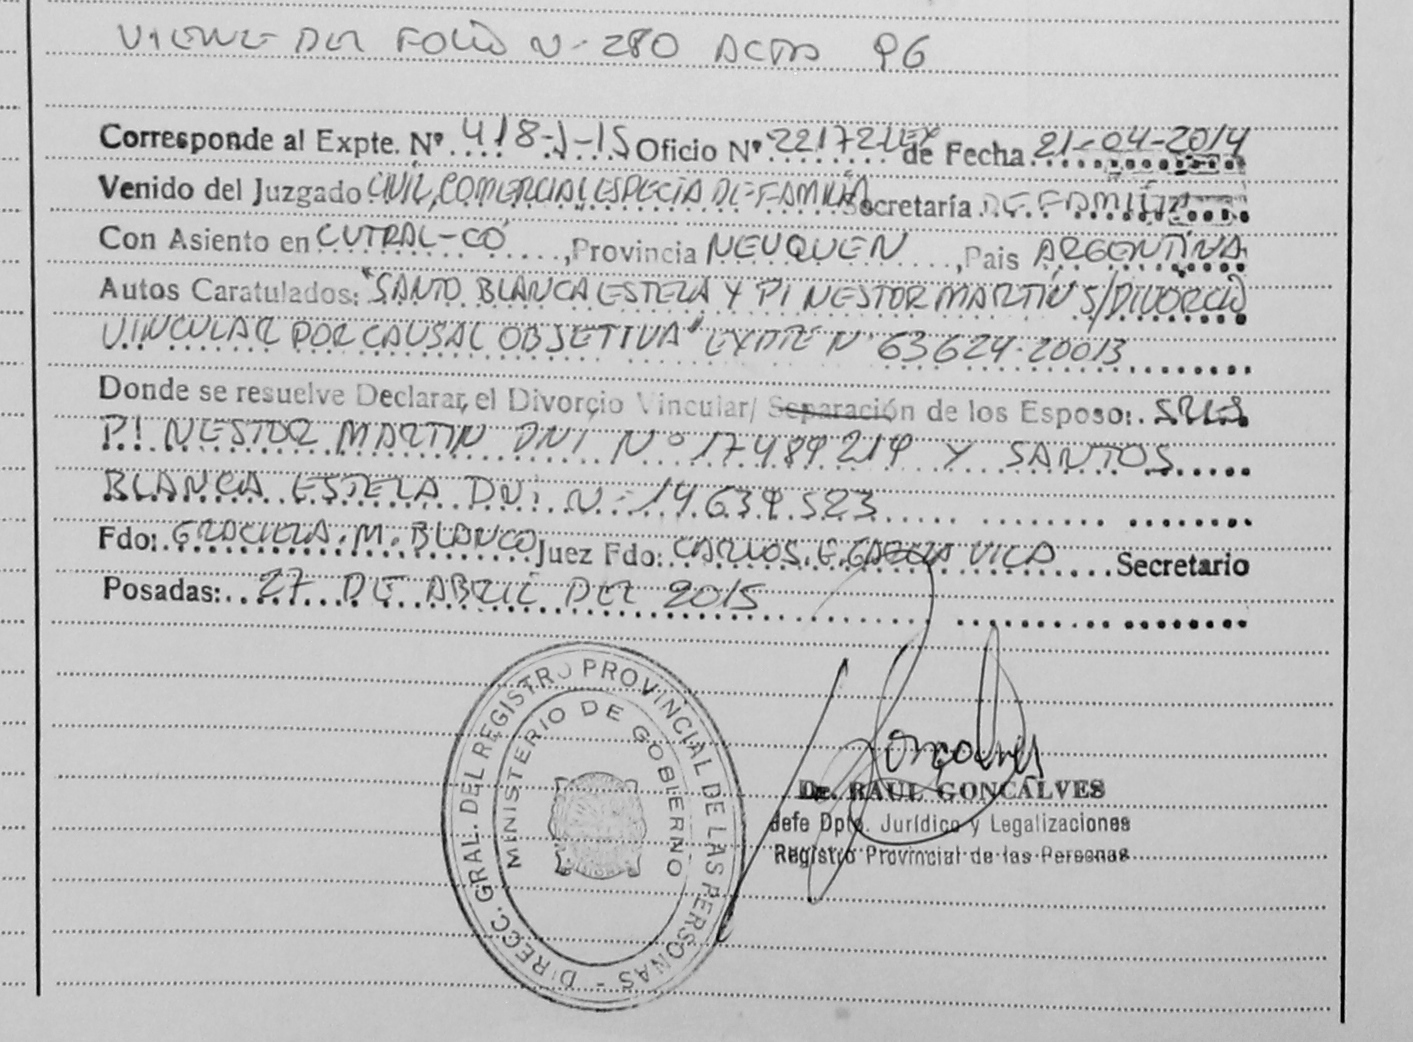 VIENE DEL FOLIO N- 280 ACTAS 96
Corresponde al Expte. Nº 418-J-15 Oficio Nº 22172 LEX de Fecha 21-04-2014
Venido del Juzgado CIVIL, COMERCIAL ESPECIA DE FAMILIA Secretaría DE FAMILIA
Con Asiento en CUTRAL-CO, Provincia NEUQUEN, Pais ARGENTINA
Autos Caratulados: "SANTO BLANCA ESTELA Y PI NESTOR MARTIN S/DIVORCIO
VINCULAR POR CAUSAL OBJETIVA" EXPTE Nº 63624-20013
Donde se resuelve Declarar, el Divorcio Vincular/ Separación de los Esposo: SRES
PI NESTOR MARTIN DNI Nº 17489219 Y SANTOS
BLANCA ESTELA DNI N- 14.639.523
Fdo: GRACIELA. M. BLANCO Juez Fdo: CARLOS. E. GARCIA VILA Secretario
Posadas: 27 DE ABRIL DEL 2015
DIRECC. GRAL. DEL REGISTRO PROVINCIAL DE LAS PERSONAS -
MINISTERIO DE GOBIERNO
Goncalves
Dr. RAUL GONCALVES
Jefe Dpto. Jurídico y Legalizaciones
Registro Provincial de las Personas